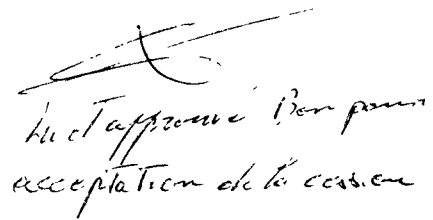 Lu et approuvé Bon pour
acceptation de la cession